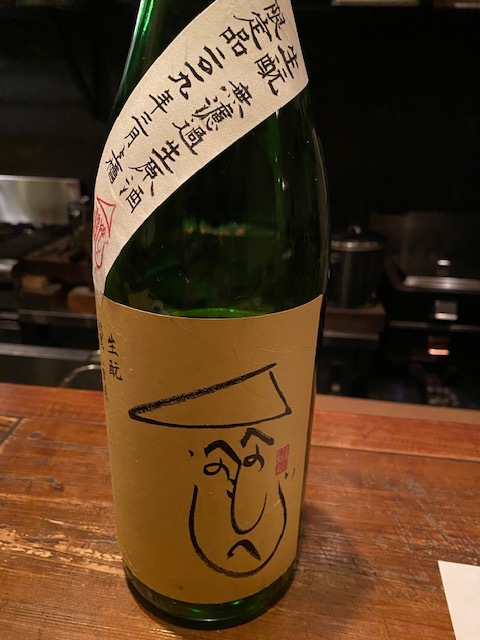 生酛 無濾過生原酒
限定品 二〇一九年三月上槽
生酛
へのへのもへじ